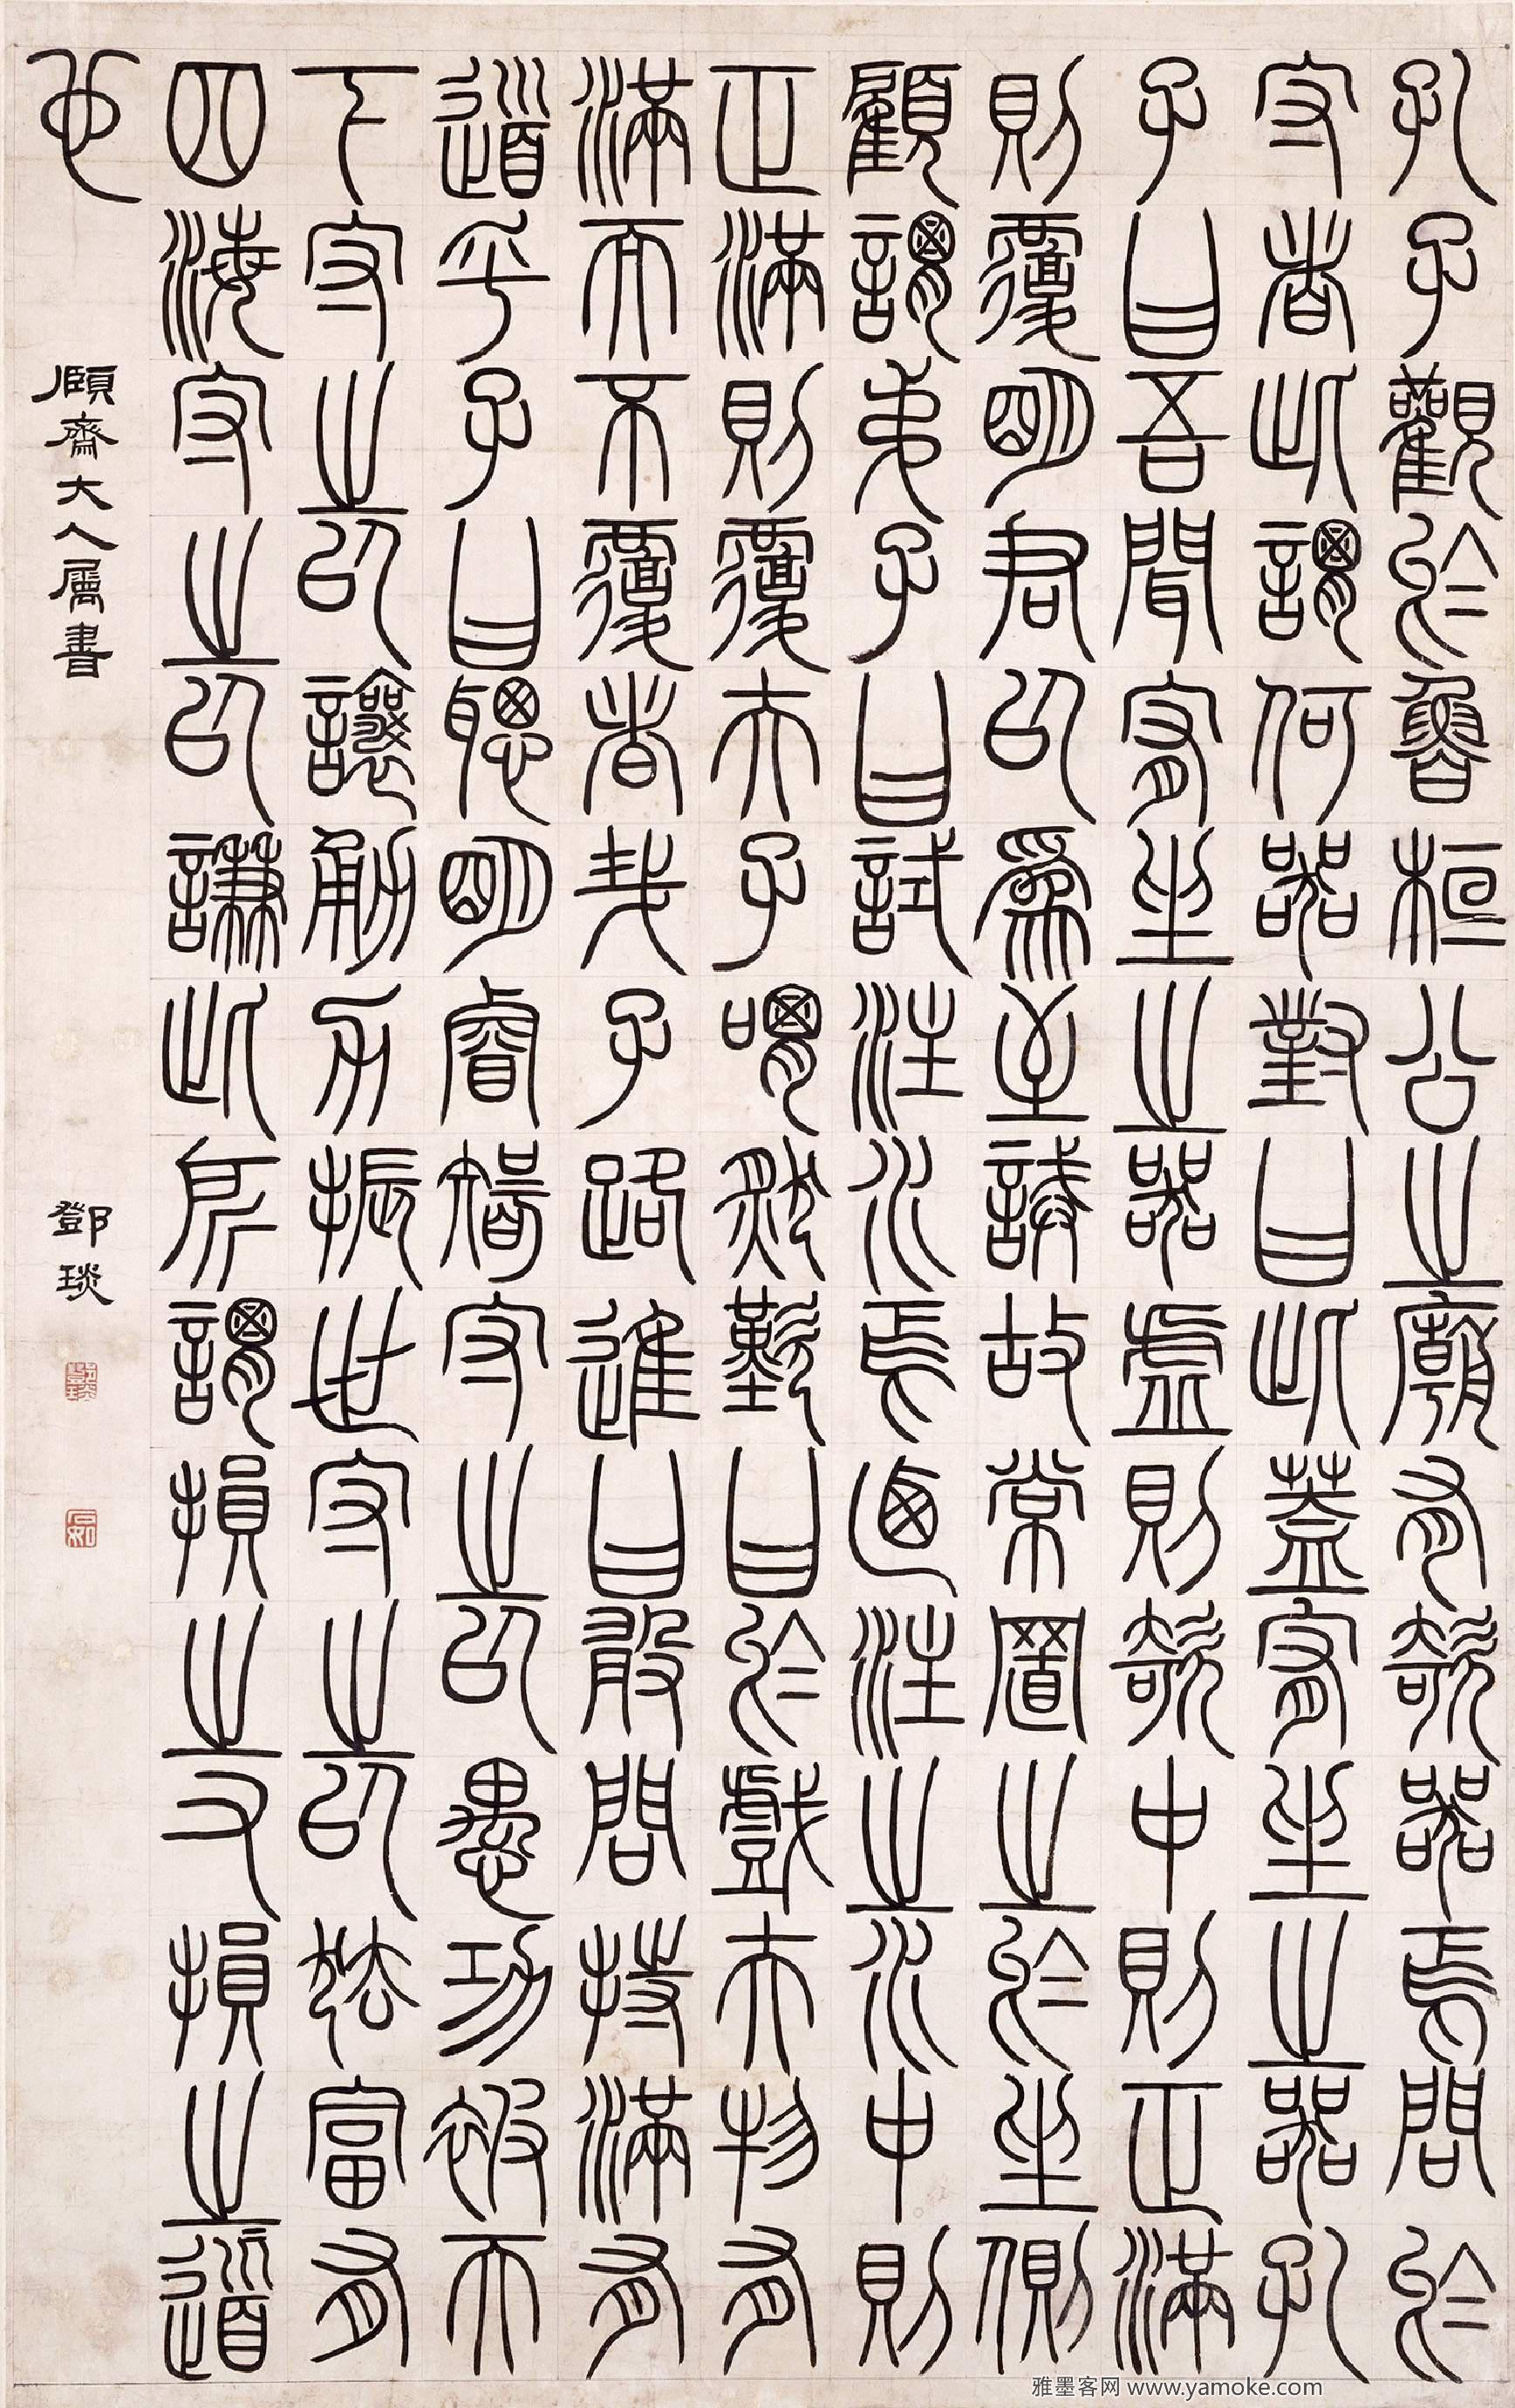 孔子觀於魯桓公之廟有欹器焉問於
守者此謂何器對曰此蓋宥坐之器孔
子曰吾聞宥坐之器虛則欹中則正滿
則覆明君以為至誡故常置之於坐側
顧謂弟子曰試注水焉迺注之水中則
正滿則覆夫子喟然歎曰於戲夫物有
滿而不覆者哉子路進曰敢問持滿有
道乎子曰聰明睿智守之以愚功被天
下守之以讓勇力振世守之以怯富有
四海守之以謙此所謂損之又損之道
也
頤齋大人屬書
鄧琰
鄧琰
石如
雅墨客网 www.yamoke.com